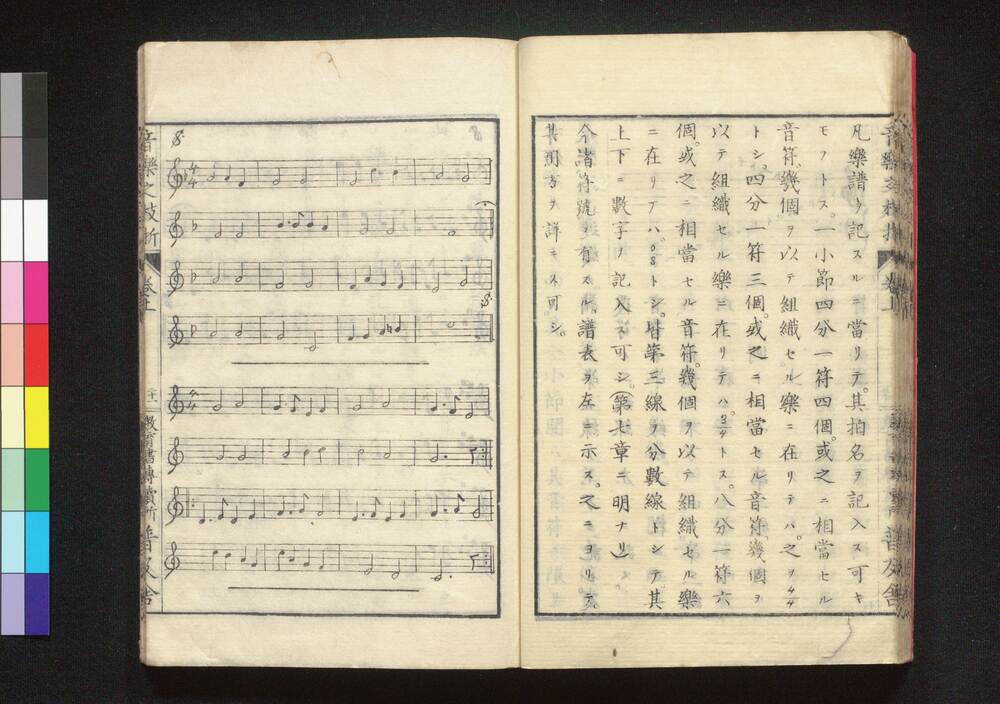 凡樂譜ヲ記スルニ當リテ。其拍名ヲ記入ス可キ
モノトス。一小節四分一符四個。或之ニ相當セル
音符。幾個ヲ以テ組織セル樂ニ在リテハ。之ヲ4/4
トシ。四分一符三個。或之ニ相當セル音符幾個ヲ
以テ組織セル樂ニ在リテハ。3/4トス。八分一符六
個。或之ニ相當セル音符。幾個ヲ以テ組織セル樂
ニ在リテハ。6/8トシ。皆第三線ヲ分數線トシテ其
上下ニ數字ノ記入ス可シ。(第七章ニ明ナリ)。
今諸符號ヲ有スル。譜表ヲ左ニ示ス。之ニヨリテ
其用方ヲ詳ニス可シ。
音樂之枝折 卷上
普及舍